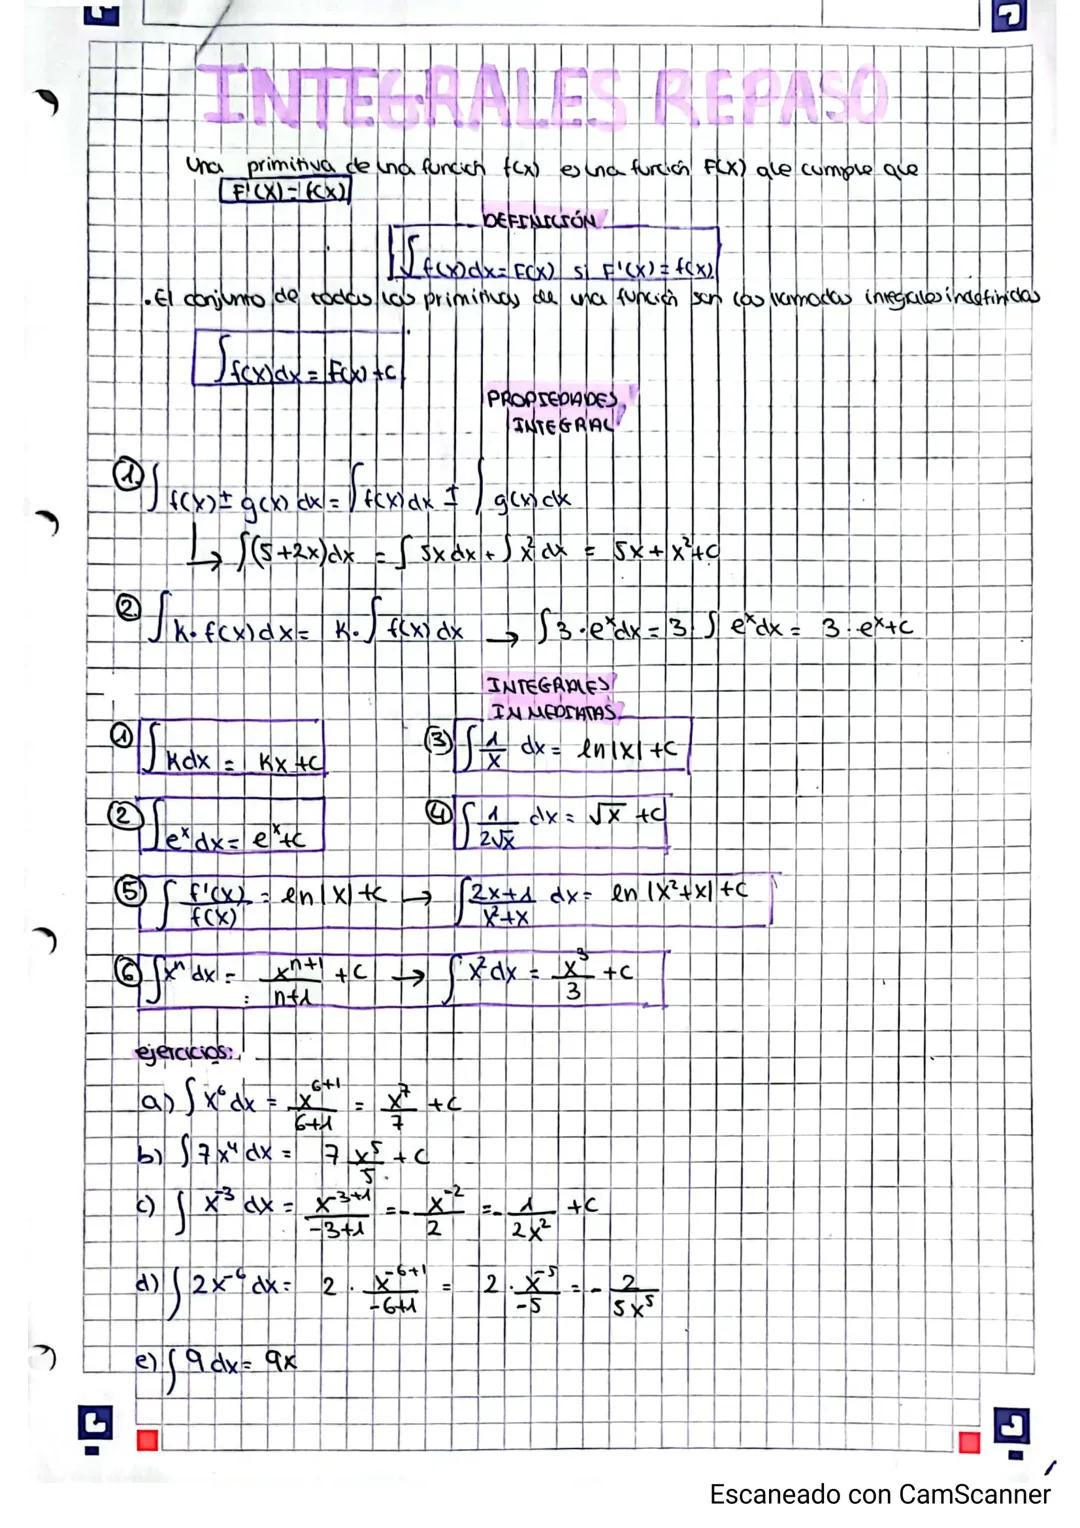 INTEGRALES REPASO
Una primitiva de una función f(x) es una función F(x) que cumple que
F'(x) = f(x)
DEFINICIÓN
∫f(x)dx = F(x) si F'(x) = f(x)
. El conjunto de todas las primitivas de una función son las llamadas integrales indefinidas
∫f(x)dx = F(x) + C
PROPIEDADES
INTEGRAL
① ∫f(x) ± g(x) dx = ∫f(x)dx ± ∫g(x)dx
↳ ∫(5+2x)dx = ∫5x dx + ∫x² dx = 5x + x² + C
② ∫K·f(x)dx = K·∫f(x)dx → ∫3·eˣdx = 3·∫eˣdx = 3·eˣ+C
INTEGRALES
INMEDIATAS
① ∫Kdx = Kx + C ③ ∫1/x dx = ln|x| + C
② ∫eˣdx = eˣ+C ④ ∫1/2√x dx = √x + C
⑤ ∫f'(x)/f(x) = ln|x| + C → ∫2x+1/x²+x dx = ln|x²+x| + C
⑥ ∫xⁿdx = xⁿ⁺¹/n+1 + C → ∫x²dx = x³/3 + C
ejercicios:
a) ∫x⁶dx = x⁶⁺¹/6+1 = x⁷/7 + C
b) ∫7x⁴dx = 7x⁵/5 + C
c) ∫x⁻³dx = x⁻³⁺¹/-3+1 = -x⁻²/2 = -1/2x² + C
d) ∫2x⁻⁶dx = 2·x⁻⁶⁺¹/-6+1 = 2·x⁻⁵/-5 = -2/5x⁵
e) ∫9dx = 9x
Escaneado con CamScanner